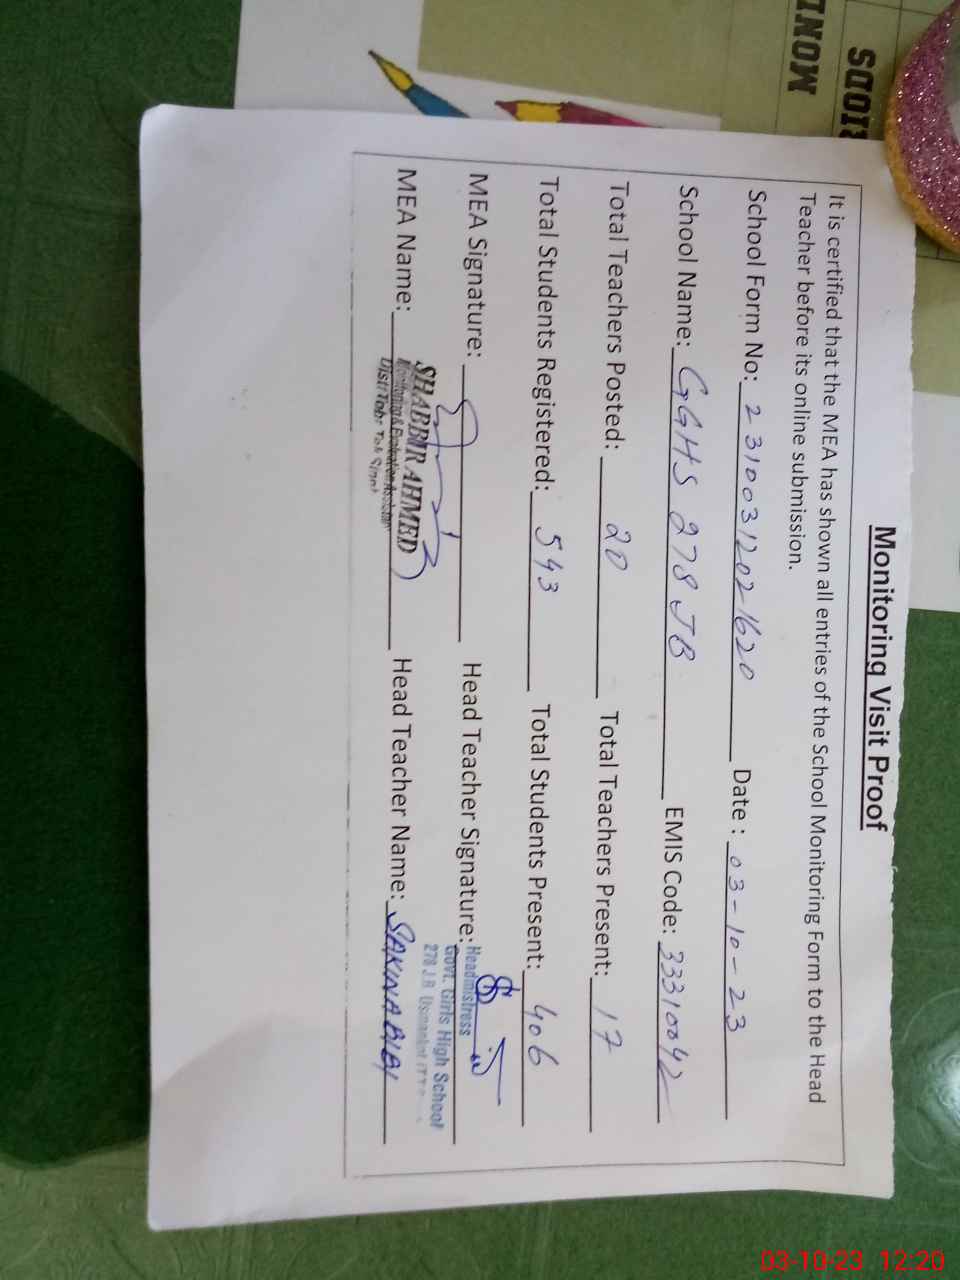 Monitoring Visit Proof
It is certified that the MEA has shown all entries of the School Monitoring Form to the Head
Teacher before its online submission.
School Form No: 23100312021620 Date : 03-10-23
School Name: GGHS 278 JB EMIS Code: 33310042
Total Teachers Posted: 20 Total Teachers Present: 17
Total Students Registered: 543 Total Students Present: 406
MEA Signature: Head Teacher Signature:
Headmistress
Govt. Girls High School
278 J.B
MEA Name: SHABBIR AHMED Head Teacher Name: SAKINA BIBI
Monitoring & Evaluation Assistant
03-10-23 12:20